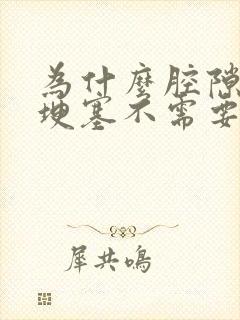 為什麼腔隙
埂塞不需要
犀共鳴